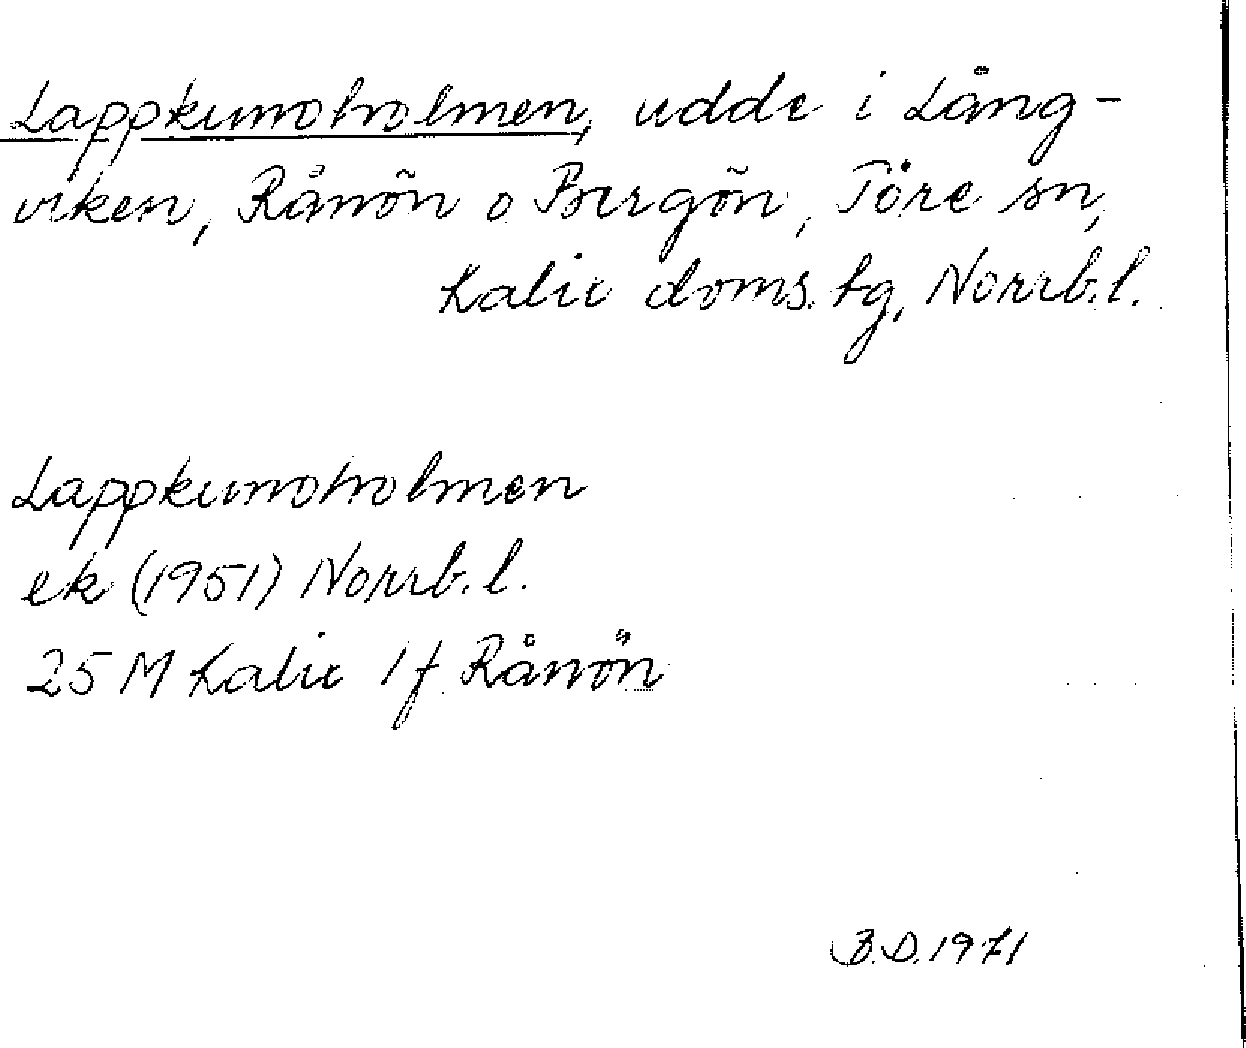 Lappkunoholmen, udde i Lång-
viken, Rånön o Bergön, Töre sn,
Kalix doms. tg, Norrb.l.
Lappkunoholmen
ek (1951) Norrb.l.
25 M Kalix 1f Rånön
B.D. 1971